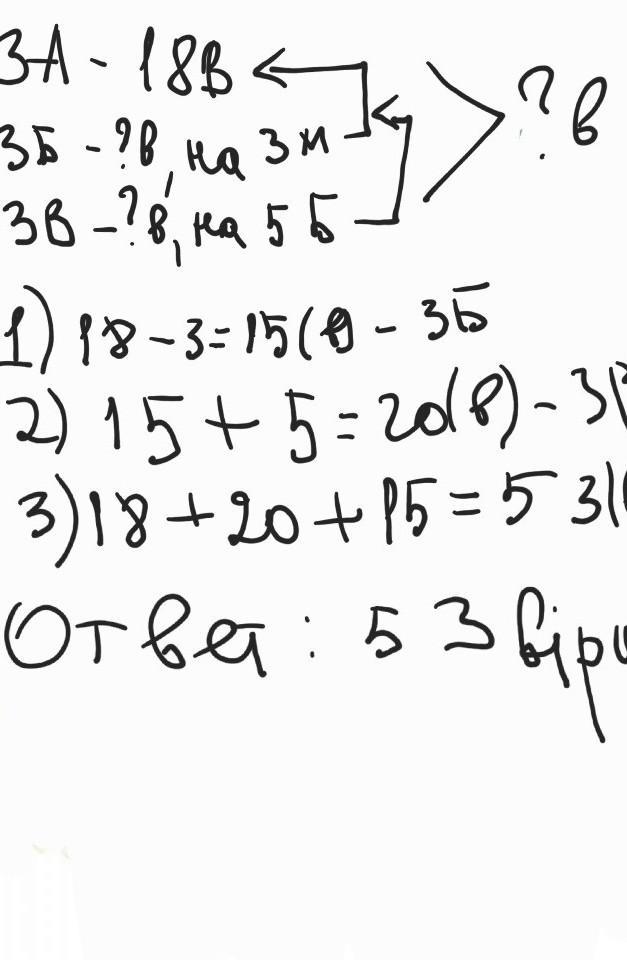 3А - 18в
3Б - ?в, на 3м ?в
3В - ?в, на 5Б
1) 18 - 3 = 15 (в) - 3Б
2) 15 + 5 = 20 (в) - 3В
3) 18 + 20 + 15 = 53 (
Ответ: 53 вірш